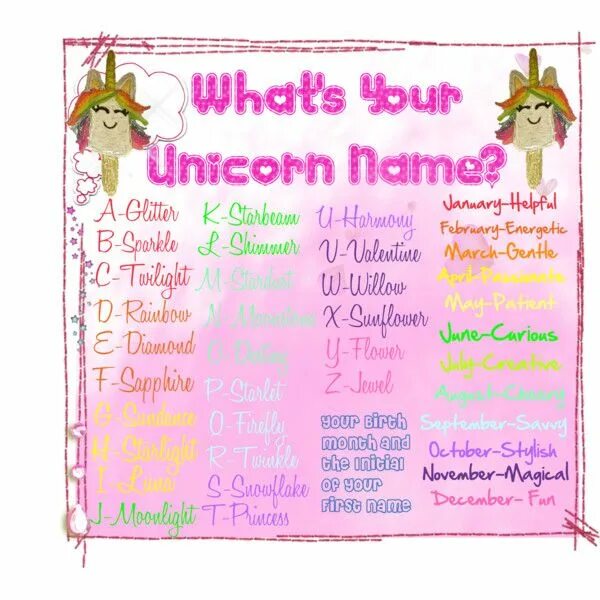 What's Your
Unicorn Name?
A-Glitter
B-Sparkle
C-Twilight
D-Rainbow
E-Diamond
F-Sapphire
G-Sundance
H-Starlight
I-Luna
J-Moonlight
K-Starbeam
L-Shimmer
M-Stardust
N-Moonstone
O-Destiny
P-Starlet
Q-Firefly
R-Twinkle
S-Snowflake
T-Princess
U-Harmony
V-Valentine
W-Willow
X-Sunflower
Y-Flower
Z-Jewel
Your Birth
month and
the initial
of your
first name
January-Helpful
February-Energetic
March-Gentle
April-Passionate
May-Patient
June-Curious
July-Creative
August-Cheery
September-Savvy
October-Stylish
November-Magical
December- Fun